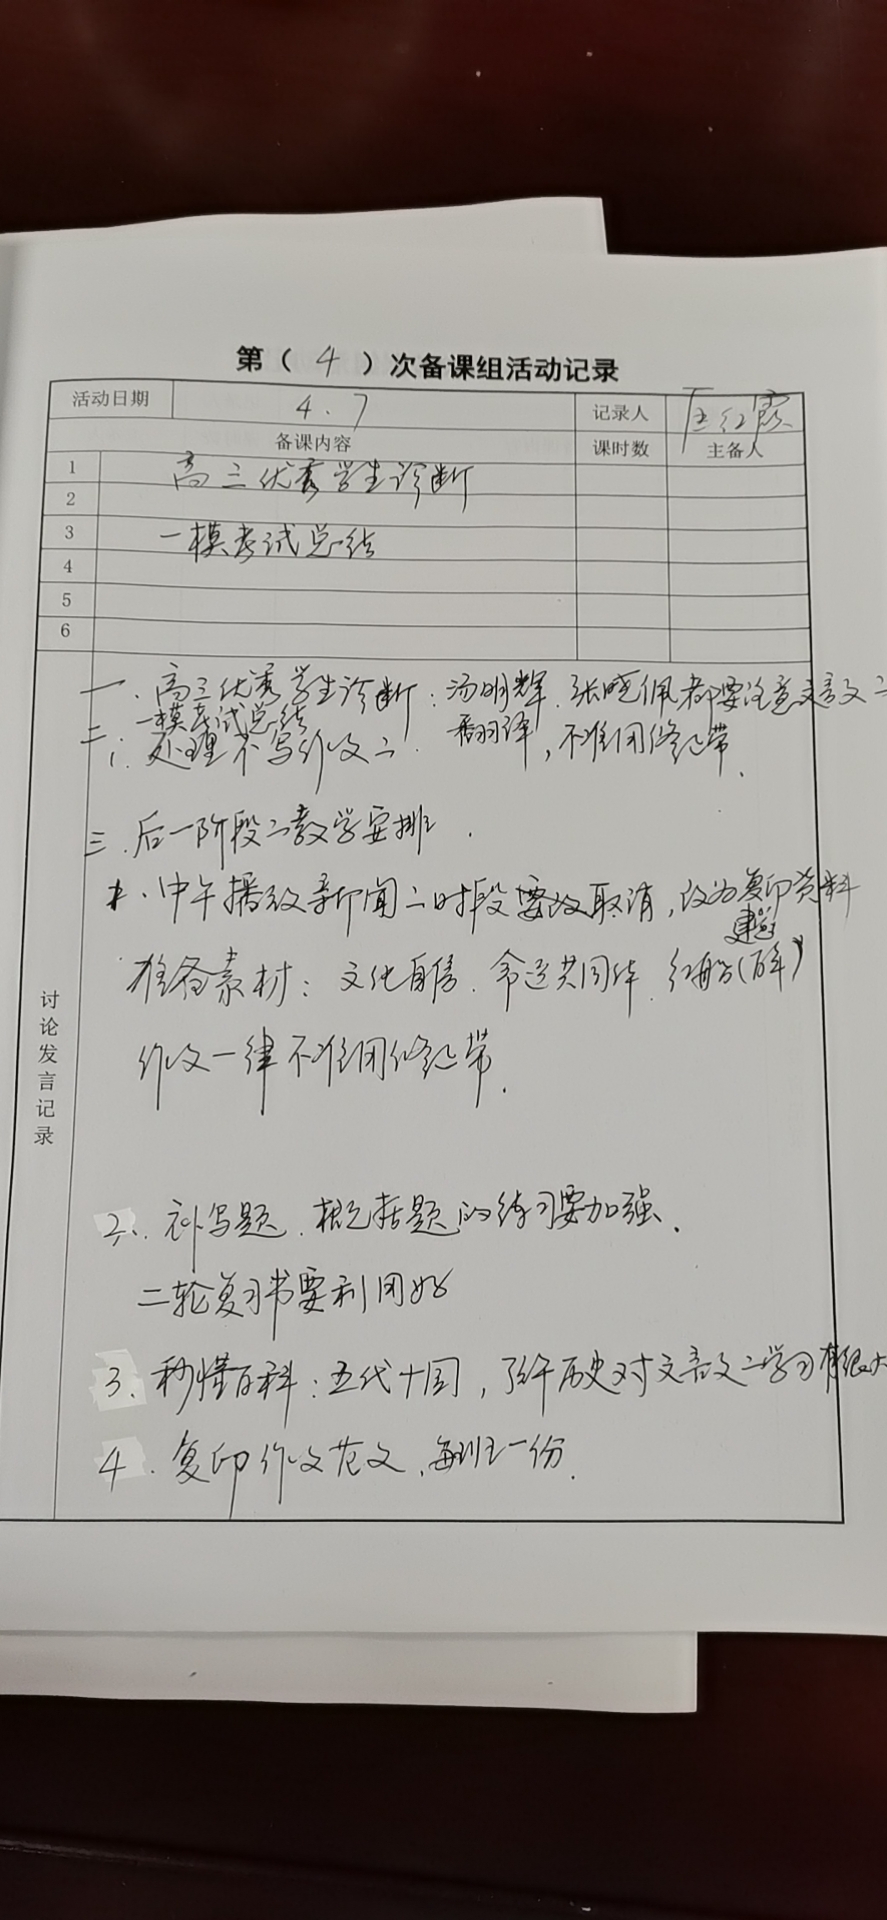 第（ 4 ）次备课组活动记录
活动日期 4.7 记录人 匡红霞
备课内容 课时数 主备人
1 高三优秀学生诊断
2
3 一模考试总结
4
5
6
讨论发言记录
一、高三优秀学生诊断：汤明辉、张晓佩都要注意文言文二
二、一模考试总结 翻译，不准用修正带.
1、处理不写作文二.
三、后一阶段二教学安排.
1、中午播放新闻二时段要改取消，改为复印资料
准备素材：文化自信、命运共同体、红船(百年) 建党
作文一律不准用修正带.
2、补写题、概括题的练习要加强.
二轮复习书要利用好
3、秒懂百科：五代十国，了解历史对文言文二学习有很大
4、复印作文范文，每班一份.